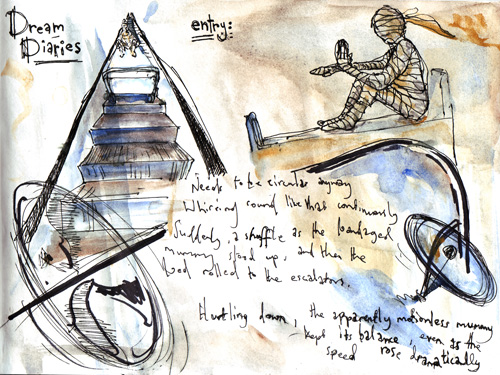 Dream
Diaries
entry:
Needs to be circular anyway
Whirring sound like that continuously
Suddenly, a shuffle as the bandaged
mummy stood up, and then the
bed rolled to the escalators.
Hurtling down, the apparently motionless mummy
kept its balance, even as the
speed rose dramatically